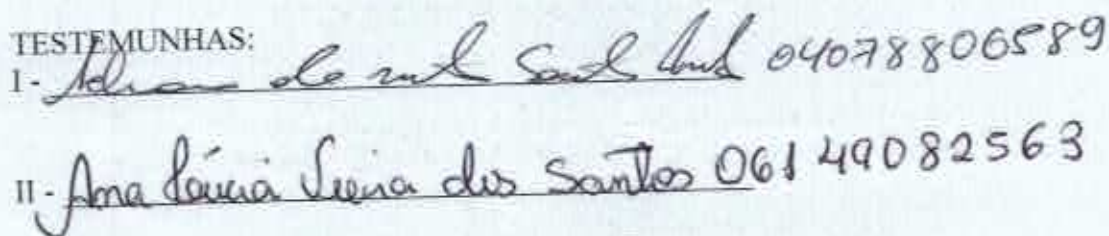 TESTEMUNHAS:
I - de 04078806589
II - Ana Lúcia Vieira dos Santos 061 490 82563